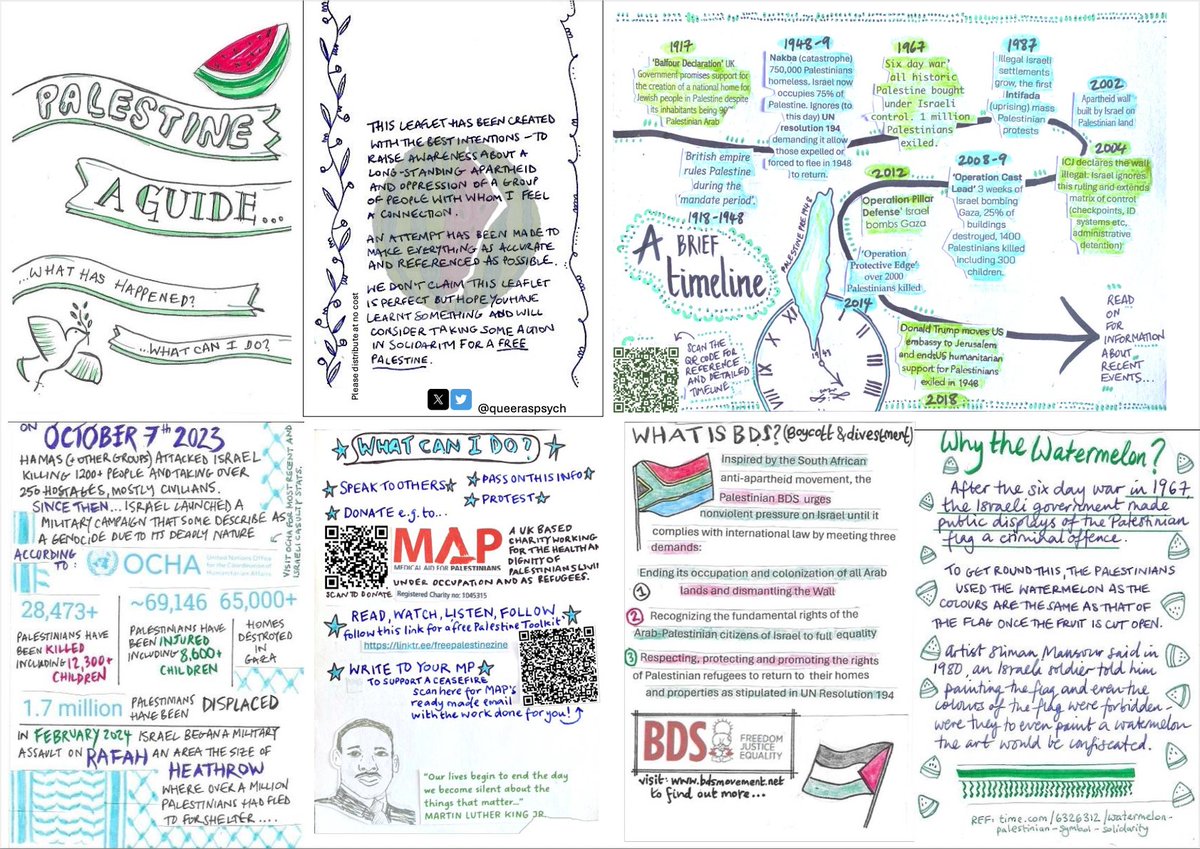 PALESTINE
A GUIDE...
...WHAT HAS HAPPENED?
...WHAT CAN I DO?
THIS LEAFLET HAS BEEN CREATED
WITH THE BEST INTENTIONS - TO
RAISE AWARENESS ABOUT A
LONG-STANDING APARTHEID
AND OPPRESSION OF A GROUP
OF PEOPLE WITH WHOM I FEEL
A CONNECTION.
AN ATTEMPT HAS BEEN MADE TO
MAKE EVERYTHING AS ACCURATE
AND REFERENCED AS POSSIBLE.
WE DON'T CLAIM THIS LEAFLET
IS PERFECT BUT HOPE YOU HAVE
LEARNT SOMETHING AND WILL
CONSIDER TAKING SOME ACTION
IN SOLIDARITY FOR A FREE
PALESTINE.
Please distribute at no cost
@queeraspsych
1917
'Balfour Declaration' UK
Government promises support for
the creation of a national home for
Jewish people in Palestine despite
its inhabitants being 90%
Palestinian Arab
British empire
rules Palestine
during the
'mandate period'.
1918-1948
1948-9
Nakba (catastrophe)
750,000 Palestinians
homeless. Israel now
occupies 75% of
Palestine. Ignores (to
this day) UN
resolution 194
demanding it allow
those expelled or
forced to flee in 1948
to return.
1967
Six day war'
all historic
Palestine bought
under Israeli
control. 1 million
Palestinians
exiled.
1987
Illegal Israeli
settlements
grow, the first
Intifada
(uprising) mass
Palestinian
protests
2002
Apartheid wall
built by Israel on
Palestinian land
2004
ICJ declares the wall
illegal: Israel ignores
this ruling and extends
matrix of control
(checkpoints, ID
systems etc,
administrative
detention)
2008-9
'Operation Cast
Lead' 3 weeks of
Israel bombing
Gaza, 25% of
buildings
destroyed, 1400
Palestinians killed
including 300
children.
2012
Operation Pillar
Defense' Israel
bombs Gaza
'Operation
Protective Edge'
over 2000
Palestinians killed
2014
Donald Trump moves US
embassy to Jerusalem
and endsUS humanitarian
support for Palestinians
exiled in 1948
2018
READ
ON
FOR
INFORMATION
ABOUT
RECENT
EVENTS...
A BRIEF
timeline
PALESTINE PRE 1948
SCAN THE
QR CODE FOR
REFERENCE
AND DETAILED
TIMELINE
ON OCTOBER 7TH 2023
HAMAS (+ OTHER GROUPS) ATTACKED ISRAEL
KILLING 1200+ PEOPLE AND TAKING OVER
250 HOSTAGES, MOSTLY CIVILIANS.
SINCE THEN... ISRAEL LAUNCHED A
MILITARY CAMPAIGN THAT SOME DESCRIBE AS
A GENOCIDE DUE TO ITS DEADLY NATURE
VISIT OCHA FOR MOST RECENT AND
ISRAELI CASUALTY STATS.
ACCORDING
TO:
OCHA
United Nations Office
for the Coordination of
Humanitarian Affairs
28,473+
PALESTINIANS HAVE
BEEN KILLED
INCLUDING 12,300+
CHILDREN
~69,146
PALESTINIANS HAVE
BEEN INJURED
INCLUDING 8,600+
CHILDREN
65,000+
HOMES
DESTROYED
IN
GAZA
1.7 million PALESTINIANS
HAVE BEEN DISPLACED
IN FEBRUARY 2024 ISRAEL BEGAN A MILITARY
ASSAULT ON RAFAH AN AREA THE SIZE OF
HEATHROW
WHERE OVER A MILLION
PALESTINIANS HAD FLED
TO FOR SHELTER....
WHAT CAN I DO?
SPEAK TO OTHERS
PASS ON THIS INFO
PROTEST
DONATE e.g. to...
MAP
MEDICAL AID FOR PALESTINIANS
SCAN TO DONATE
Registered Charity no: 1045315
A UK BASED
CHARITY WORKING
FOR THE HEALTH AN
DIGNITY OF
PALESTINIANS LIVI
UNDER OCCUPATION AND AS REFUGEES.
READ, WATCH, LISTEN, FOLLOW
follow this link for a free Palestine Toolkit'
https://linktr.ee/freepalestinezine
WRITE TO YOUR MP
TO SUPPORT A CEASEFIRE
scan here for MAP's
ready made email
with the work done for you!
"Our lives begin to end the day
we become silent about the
things that matter..."
MARTIN LUTHER KING JR.
WHAT IS BDS? (Boycott & divestment)
Inspired by the South African
anti-apartheid movement, the
Palestinian BDS urges
nonviolent pressure on Israel until it
complies with international law by meeting three
demands:
Ending its occupation and colonization of all Arab
1 lands and dismantling the Wall
2 Recognizing the fundamental rights of the
Arab-Palestinian citizens of Israel to full equality
3 Respecting, protecting and promoting the rights
of Palestinian refugees to return to their homes
and properties as stipulated in UN Resolution 194
BDS
FREEDOM
JUSTICE
EQUALITY
visit: www.bdsmovement.net
to find out more...
Why the Watermelon?
After the six day war in 1967
the Israeli government made
public displays of the Palestinian
flag a criminal offence.
TO GET ROUND THIS, THE PALESTINIANS
USED THE WATERMELON AS THE
COLOURS ARE THE SAME AS THAT OF
THE FLAG ONCE THE FRUIT IS CUT OPEN.
Artist Sliman Mansour said in
1980, an Israeli soldier told him
painting the flag and even the
colours of the flag were forbidden-
were they to even paint a watermelon
the art would be confiscated.
REF: time.com/6326312/watermelon-
palestinian-symbol-solidarity